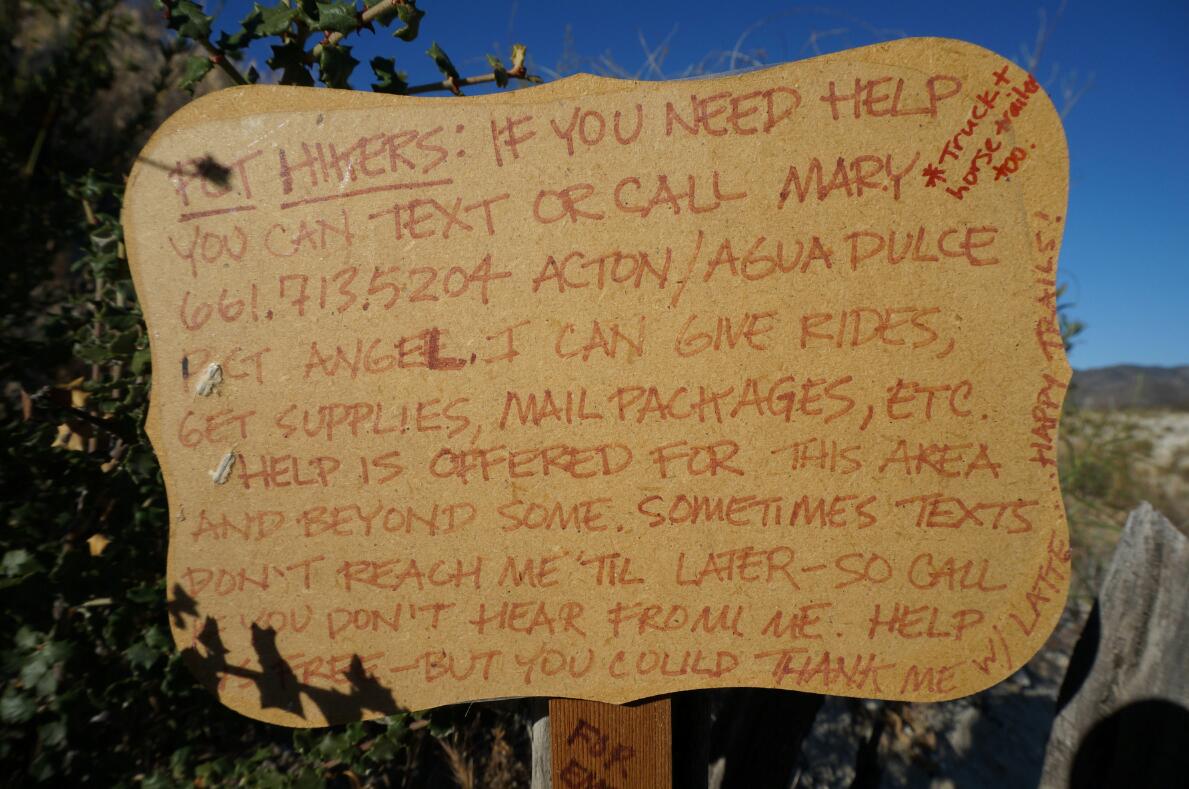 PCT HIKERS: IF YOU NEED HELP
YOU CAN TEXT OR CALL MARY
661.713.5204 ACTON/AGUA DULCE
PCT ANGEL. I CAN GIVE RIDES,
GET SUPPLIES, MAIL PACKAGES, ETC.
HELP IS OFFERED FOR THIS AREA
AND BEYOND SOME. SOMETIMES TEXTS
DON'T REACH ME 'TIL LATER-SO CALL
IF YOU DON'T HEAR FROM ME. HELP
IS FREE-BUT YOU COULD THANK ME
W/ LATTE...HAPPY TRAILS!
*Truck +
horse trailer
too.
FOR